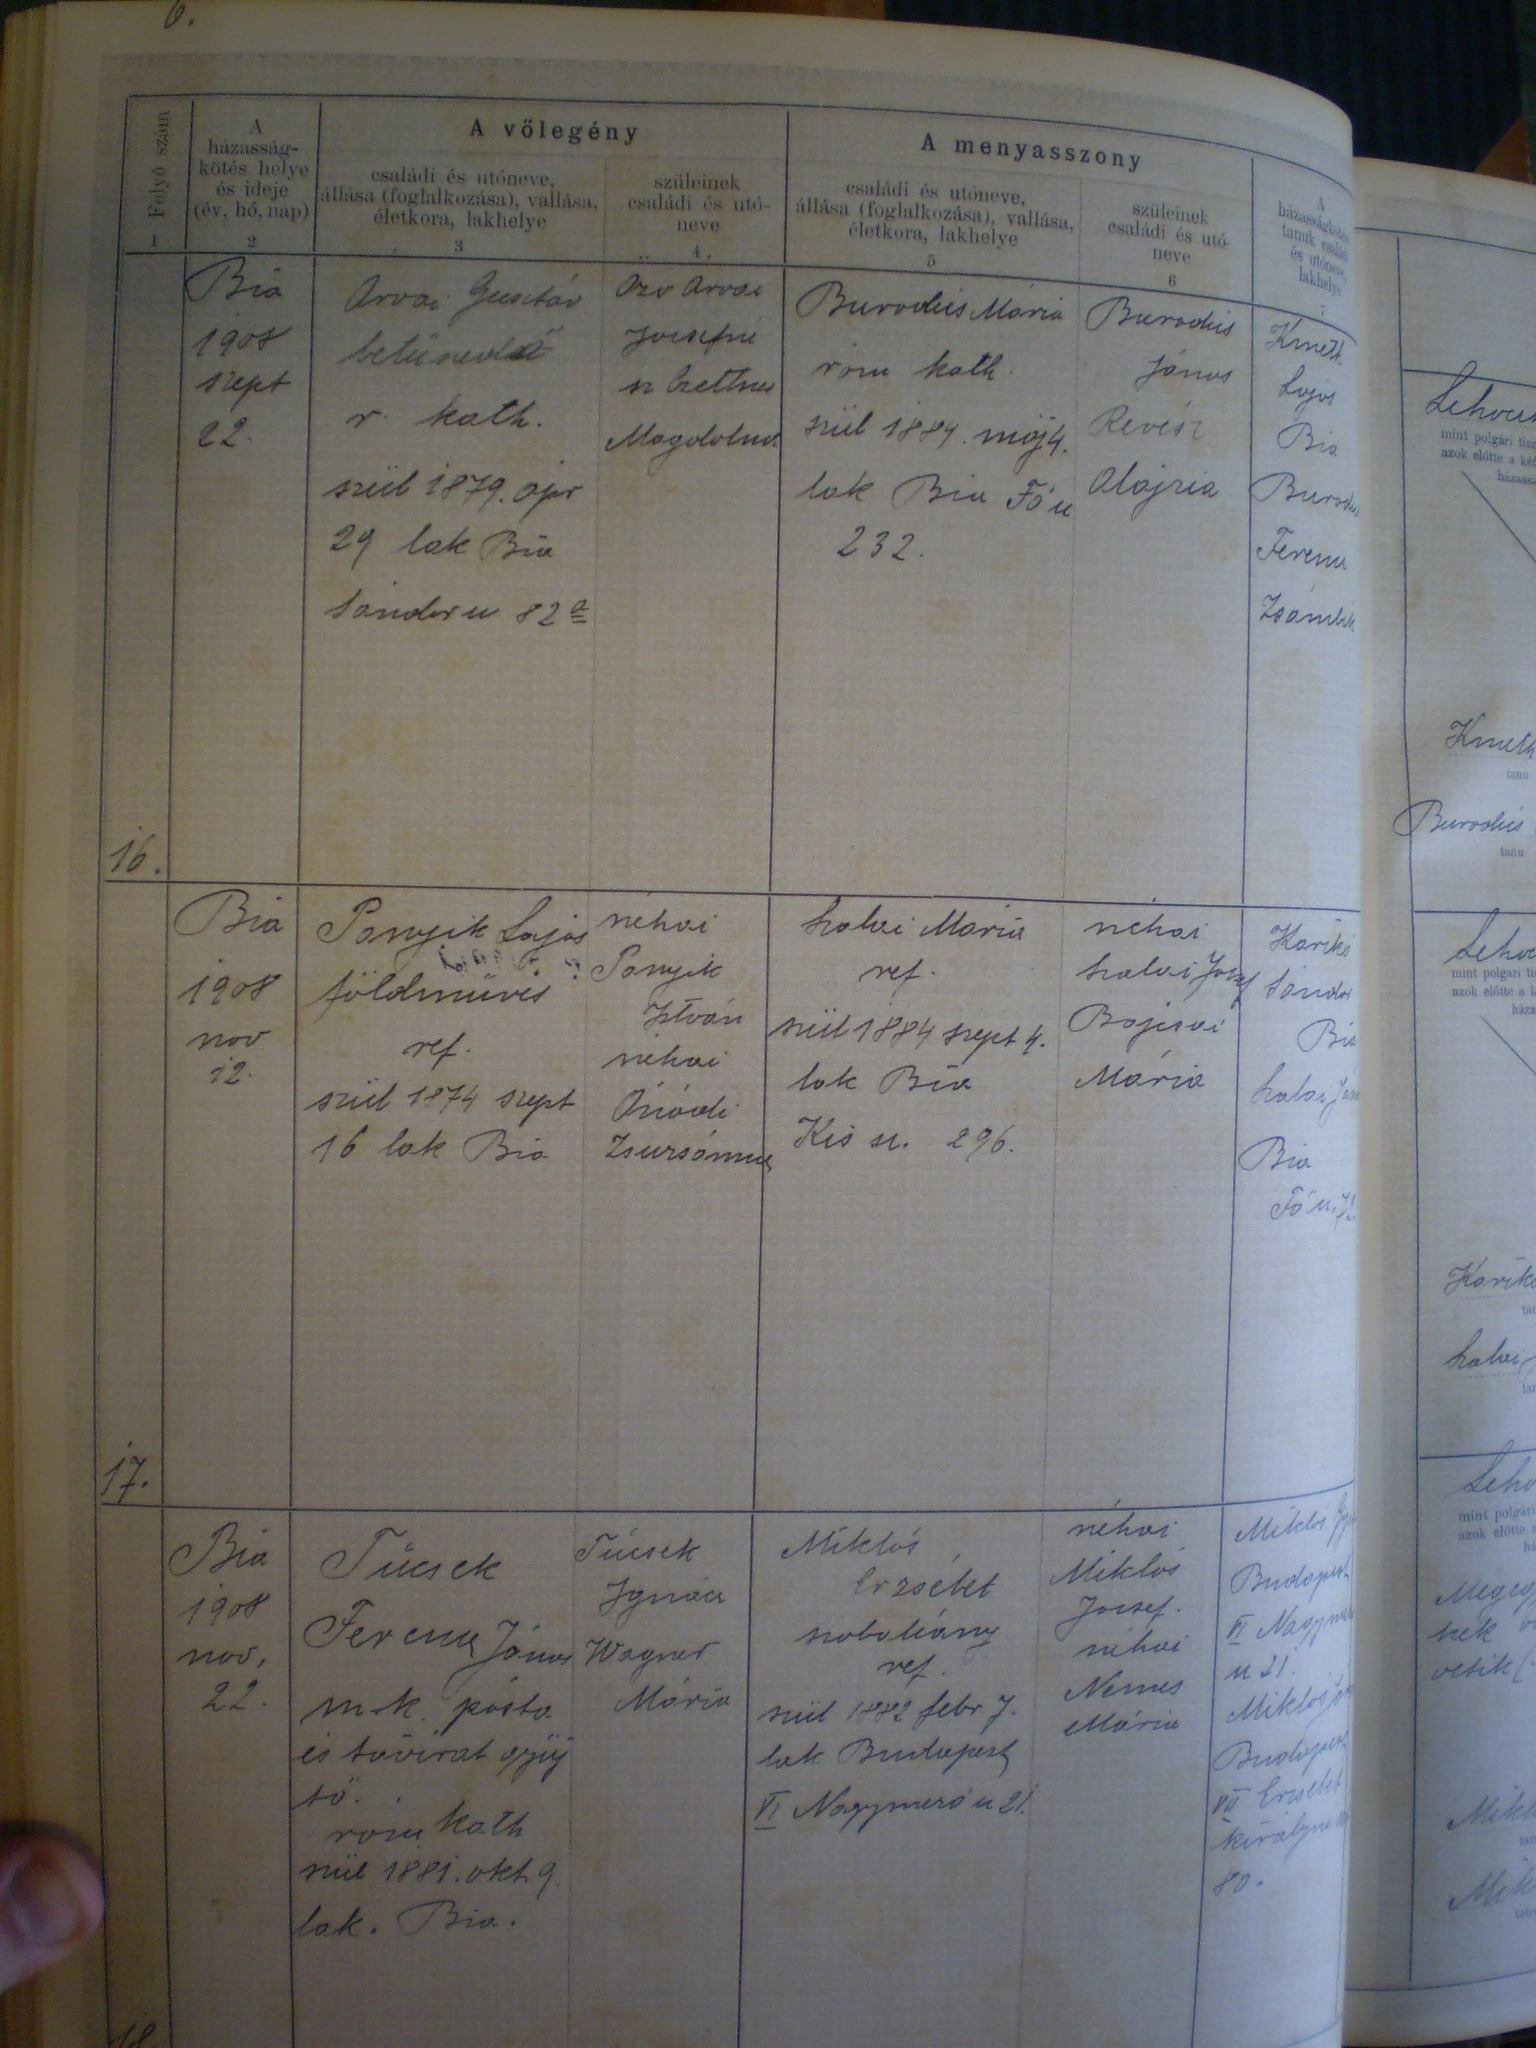 6.
Folyó szám
A
házasság-
kötés helye
és ideje
(év, hó, nap)
A vőlegény
családi és utóneve,
állása (foglalkozása), vallása,
életkora, lakhelye
szüleinek
családi és utó-
neve
A menyasszony
családi és utóneve,
állása (foglalkozása), vallása,
életkora, lakhelye
szüleinek
családi és utó-
neve
A
házasságkötési
tanuk családi
és utóneve,
lakhelye
1
2
3
4
5
6
7
16.
Bia
1908
szept
22.
Árvai Gusztáv
betűszedő
r. kath.
szül 1879. ápr
29 lak Bia
Sándor u 82 a
Özv Árvai
Józsefné
sz
Magdolna
Burodics Mária
róm kath.
szül 1884. máj 4.
lak Bia Fő u
232.
Burodics
János
Révész
Alojzia
Kmeth
Lajos
Bia
Burodics
Ferenc
Zsámbék
17.
Bia
1908
nov
12.
Panyik Lajos
földmüves
ref.
szül 1874 szept
16 lak Bia
néhai
Panyik
István
néhai
Zsuzsánna
Szalai Mária
ref.
szül 1884 szept 4.
lak Bia
Kis u. 296.
néhai
Szalai József
Bajcsai
Mária
Karikó
Sándor
Bia
Szalai
Bia
Fő u.
18.
Bia
1908
nov.
22.
Tücsek
Ferenc János
m. k. pósta
és távirat
tő.
róm kath
szül 1881. okt. 9.
lak. Bia.
Tücsek
Ignácz
Wagner
Mária
Miklós
Erzsébet
szobaleány
ref.
szül 1882 febr 7.
lak Budapest
VI Nagymező u 21.
néhai
Miklós
József.
néhai
Nemes
Mária
Miklós
Budapest
VI Nagymező
u 21.
Miklós
Budapest
VII Erzsébet
királyné
80.
mint polgári
azok előtte a
Kmeth
tanu
Burodics
tanu
mint polgári
azok előtte a
Karikó
Szalai
mint polgári
azok előtte
vetik